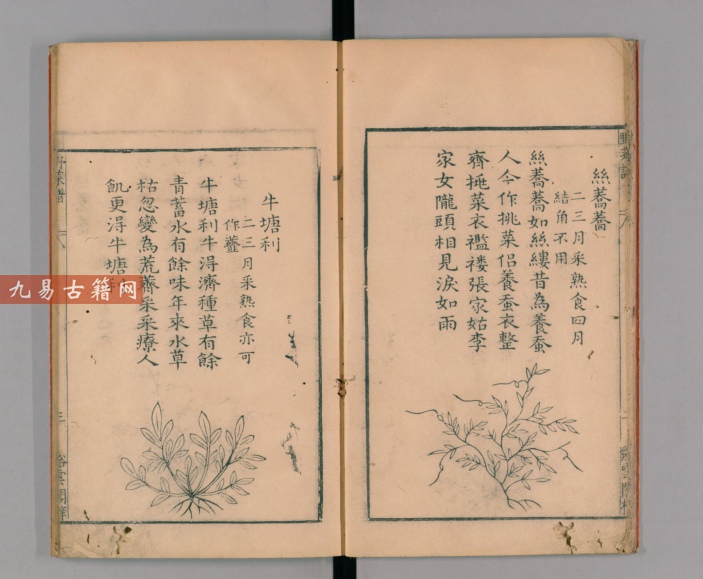 絲蕎蕎
二三月采熟食四月
結角不用
絲蕎蕎如絲縷昔為養蚕
人今作挑菜侶養蚕衣整
齊挑菜衣襤褸張家姑李
家女隴頭相見淚如雨
牛塘利
二三月采熟食亦可
作虀
牛塘利牛得濟種草有餘
青蓄水有餘味年來水草
枯忽變為荒薺采采療人
飢更得牛塘
野菜譜
九易古籍网